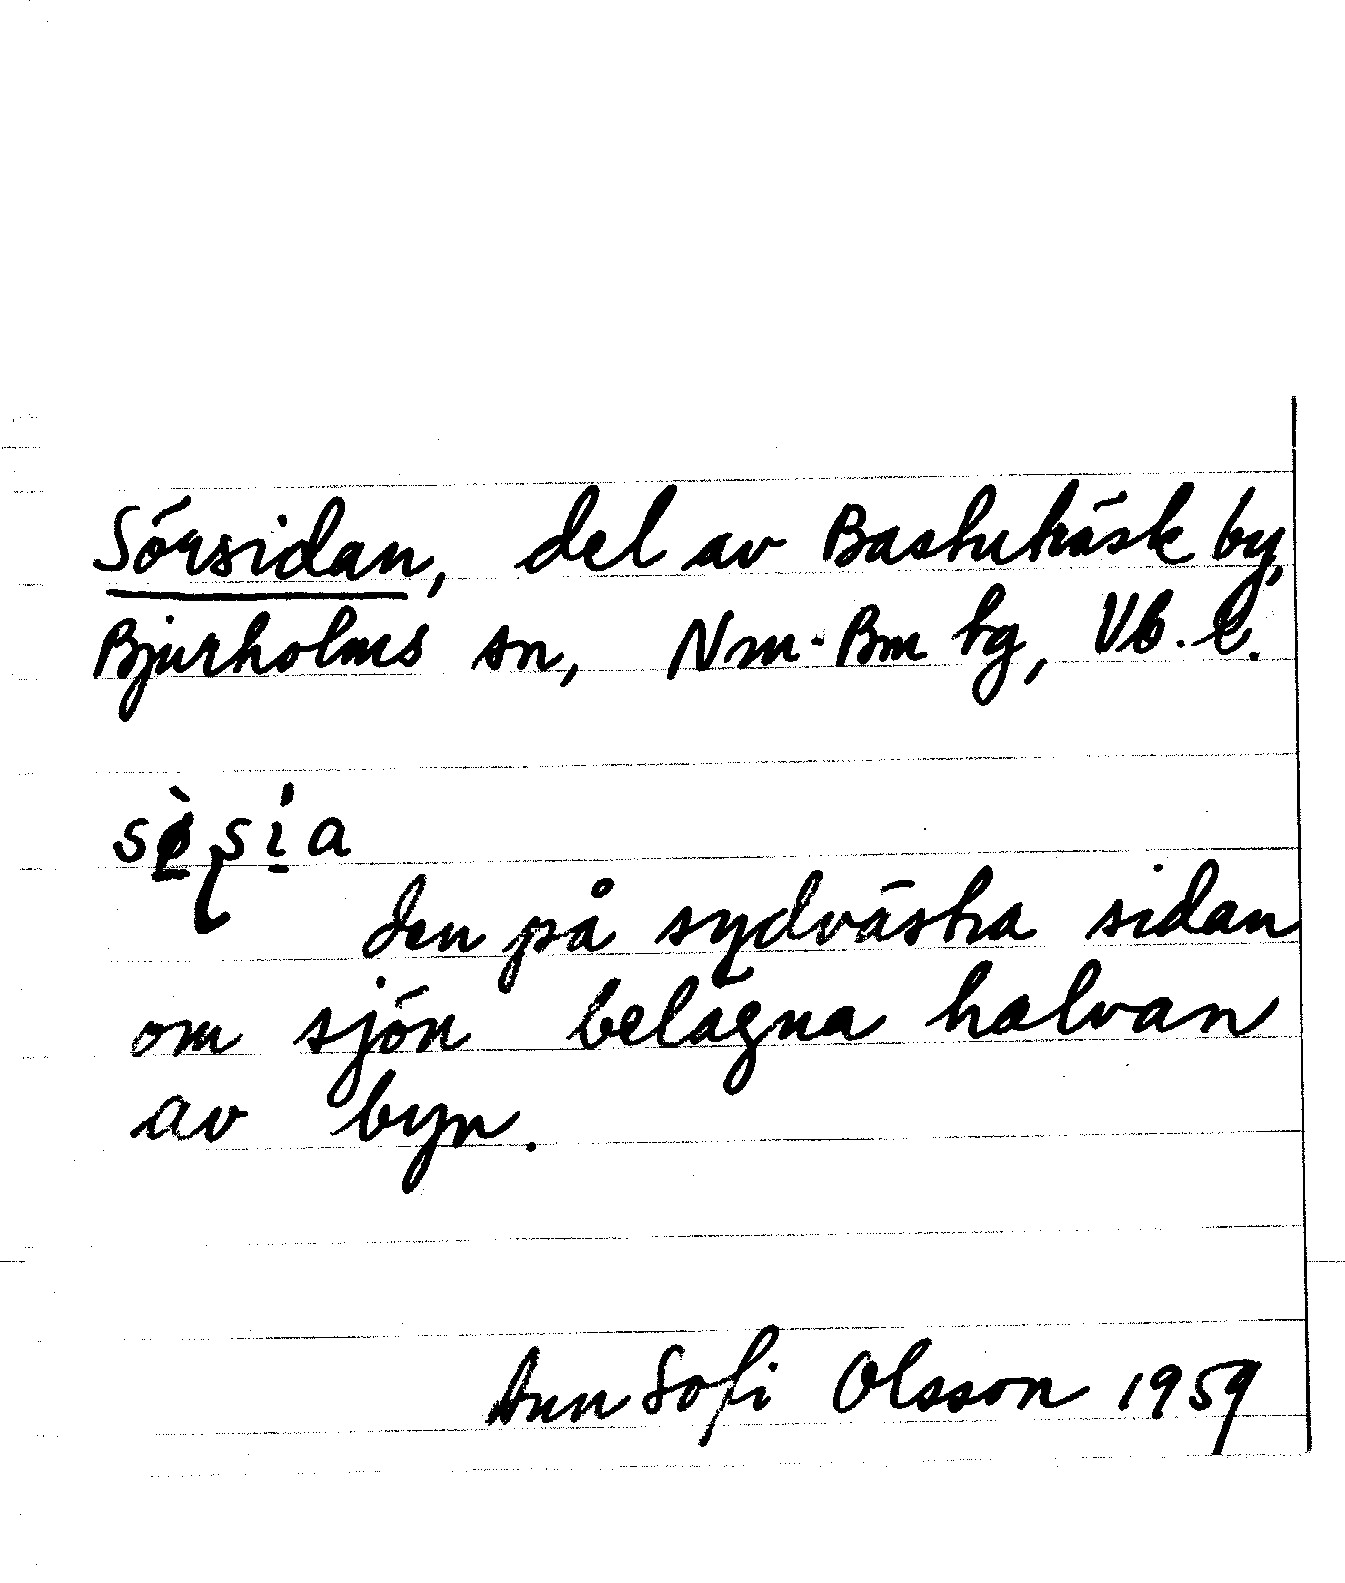 Sörsidan, del av Bastuträsk by,
Bjurholms sn, Nm-Bm tg, Vb. l.
den på sydvästra sidan
om sjön belägna halvan
av byn.
Ann Sofi Olsson 1959